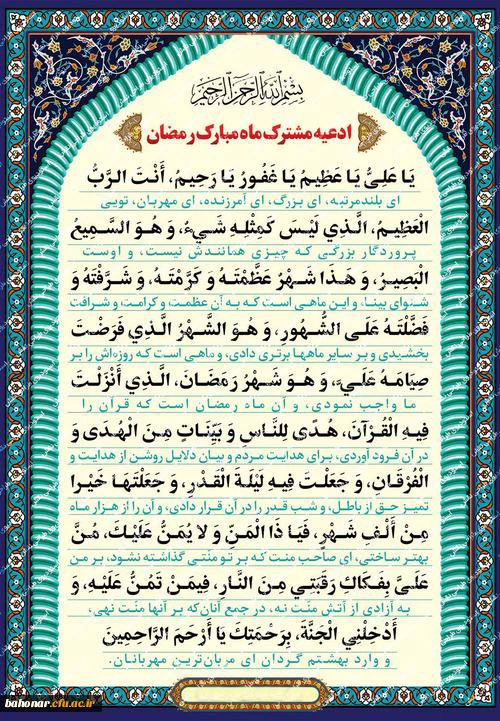 بِسْمِ اللَّهِ الرَّحْمَنِ الرَّحِيمِ
ادعیه مشترک ماه مبارک رمضان
يَا عَلِيُّ يَا عَظِيمُ يَا غَفُورُ يَا رَحِيمُ، أَنْتَ الرَّبُّ
ای بلندمرتبه، ای بزرگ، ای آمرزنده، ای مهربان، تویی
الْعَظِيمُ، الَّذِي لَيْسَ كَمِثْلِهِ شَيْءٌ، وَ هُوَ السَّمِيعُ
پروردگار بزرگی که چیزی همانندش نیست، و اوست
الْبَصِيرُ، وَ هَذَا شَهْرٌ عَظَّمْتَهُ وَ كَرَّمْتَهُ، وَ شَرَّفْتَهُ وَ
شنوای بینا، و این ماهی است که به آن عظمت و کرامت و شرافت
فَضَّلْتَهُ عَلَى الشُّهُورِ، وَ هُوَ الشَّهْرُ الَّذِي فَرَضْتَ
بخشیدی و بر سایر ماهها برتری دادی، و ماهی است که روزه‌اش را بر
صِيَامَهُ عَلَيَّ، وَ هُوَ شَهْرُ رَمَضَانَ، الَّذِي أَنْزَلْتَ
ما واجب نمودی، و آن ماه رمضان است که قرآن را
فِيهِ الْقُرْآنَ، هُدًى لِلنَّاسِ وَ بَيِّنَاتٍ مِنَ الْهُدَى وَ
در آن فرود آوردی، برای هدایت مردم و بیان دلایل روشن از هدایت و
الْفُرْقَانِ، وَ جَعَلْتَ فِيهِ لَيْلَةَ الْقَدْرِ، وَ جَعَلْتَهَا خَيْرا
تمیز حق از باطل، و شب قدر را در آن قرار دادی، و آن را از هزار ماه
مِنْ أَلْفِ شَهْرٍ، فَيَا ذَا الْمَنِّ وَ لا يُمَنُّ عَلَيْكَ، مُنَّ
بهتر ساختی، ای صاحب منت که بر تو منّتی گذاشته نشود، بر من
عَلَيَّ بِفَكَاكِ رَقَبَتِي مِنَ النَّارِ، فِيمَنْ تَمُنُّ عَلَيْهِ، وَ
به آزادی از آتش منّت نه، در جمع آنان که بر آنها منّت نهی،
أَدْخِلْنِي الْجَنَّةَ، بِرَحْمَتِكَ يَا أَرْحَمَ الرَّاحِمِينَ
و وارد بهشتم گردان ای مهربان‌ترین مهربانان.
bahonar.cfu.ac.ir